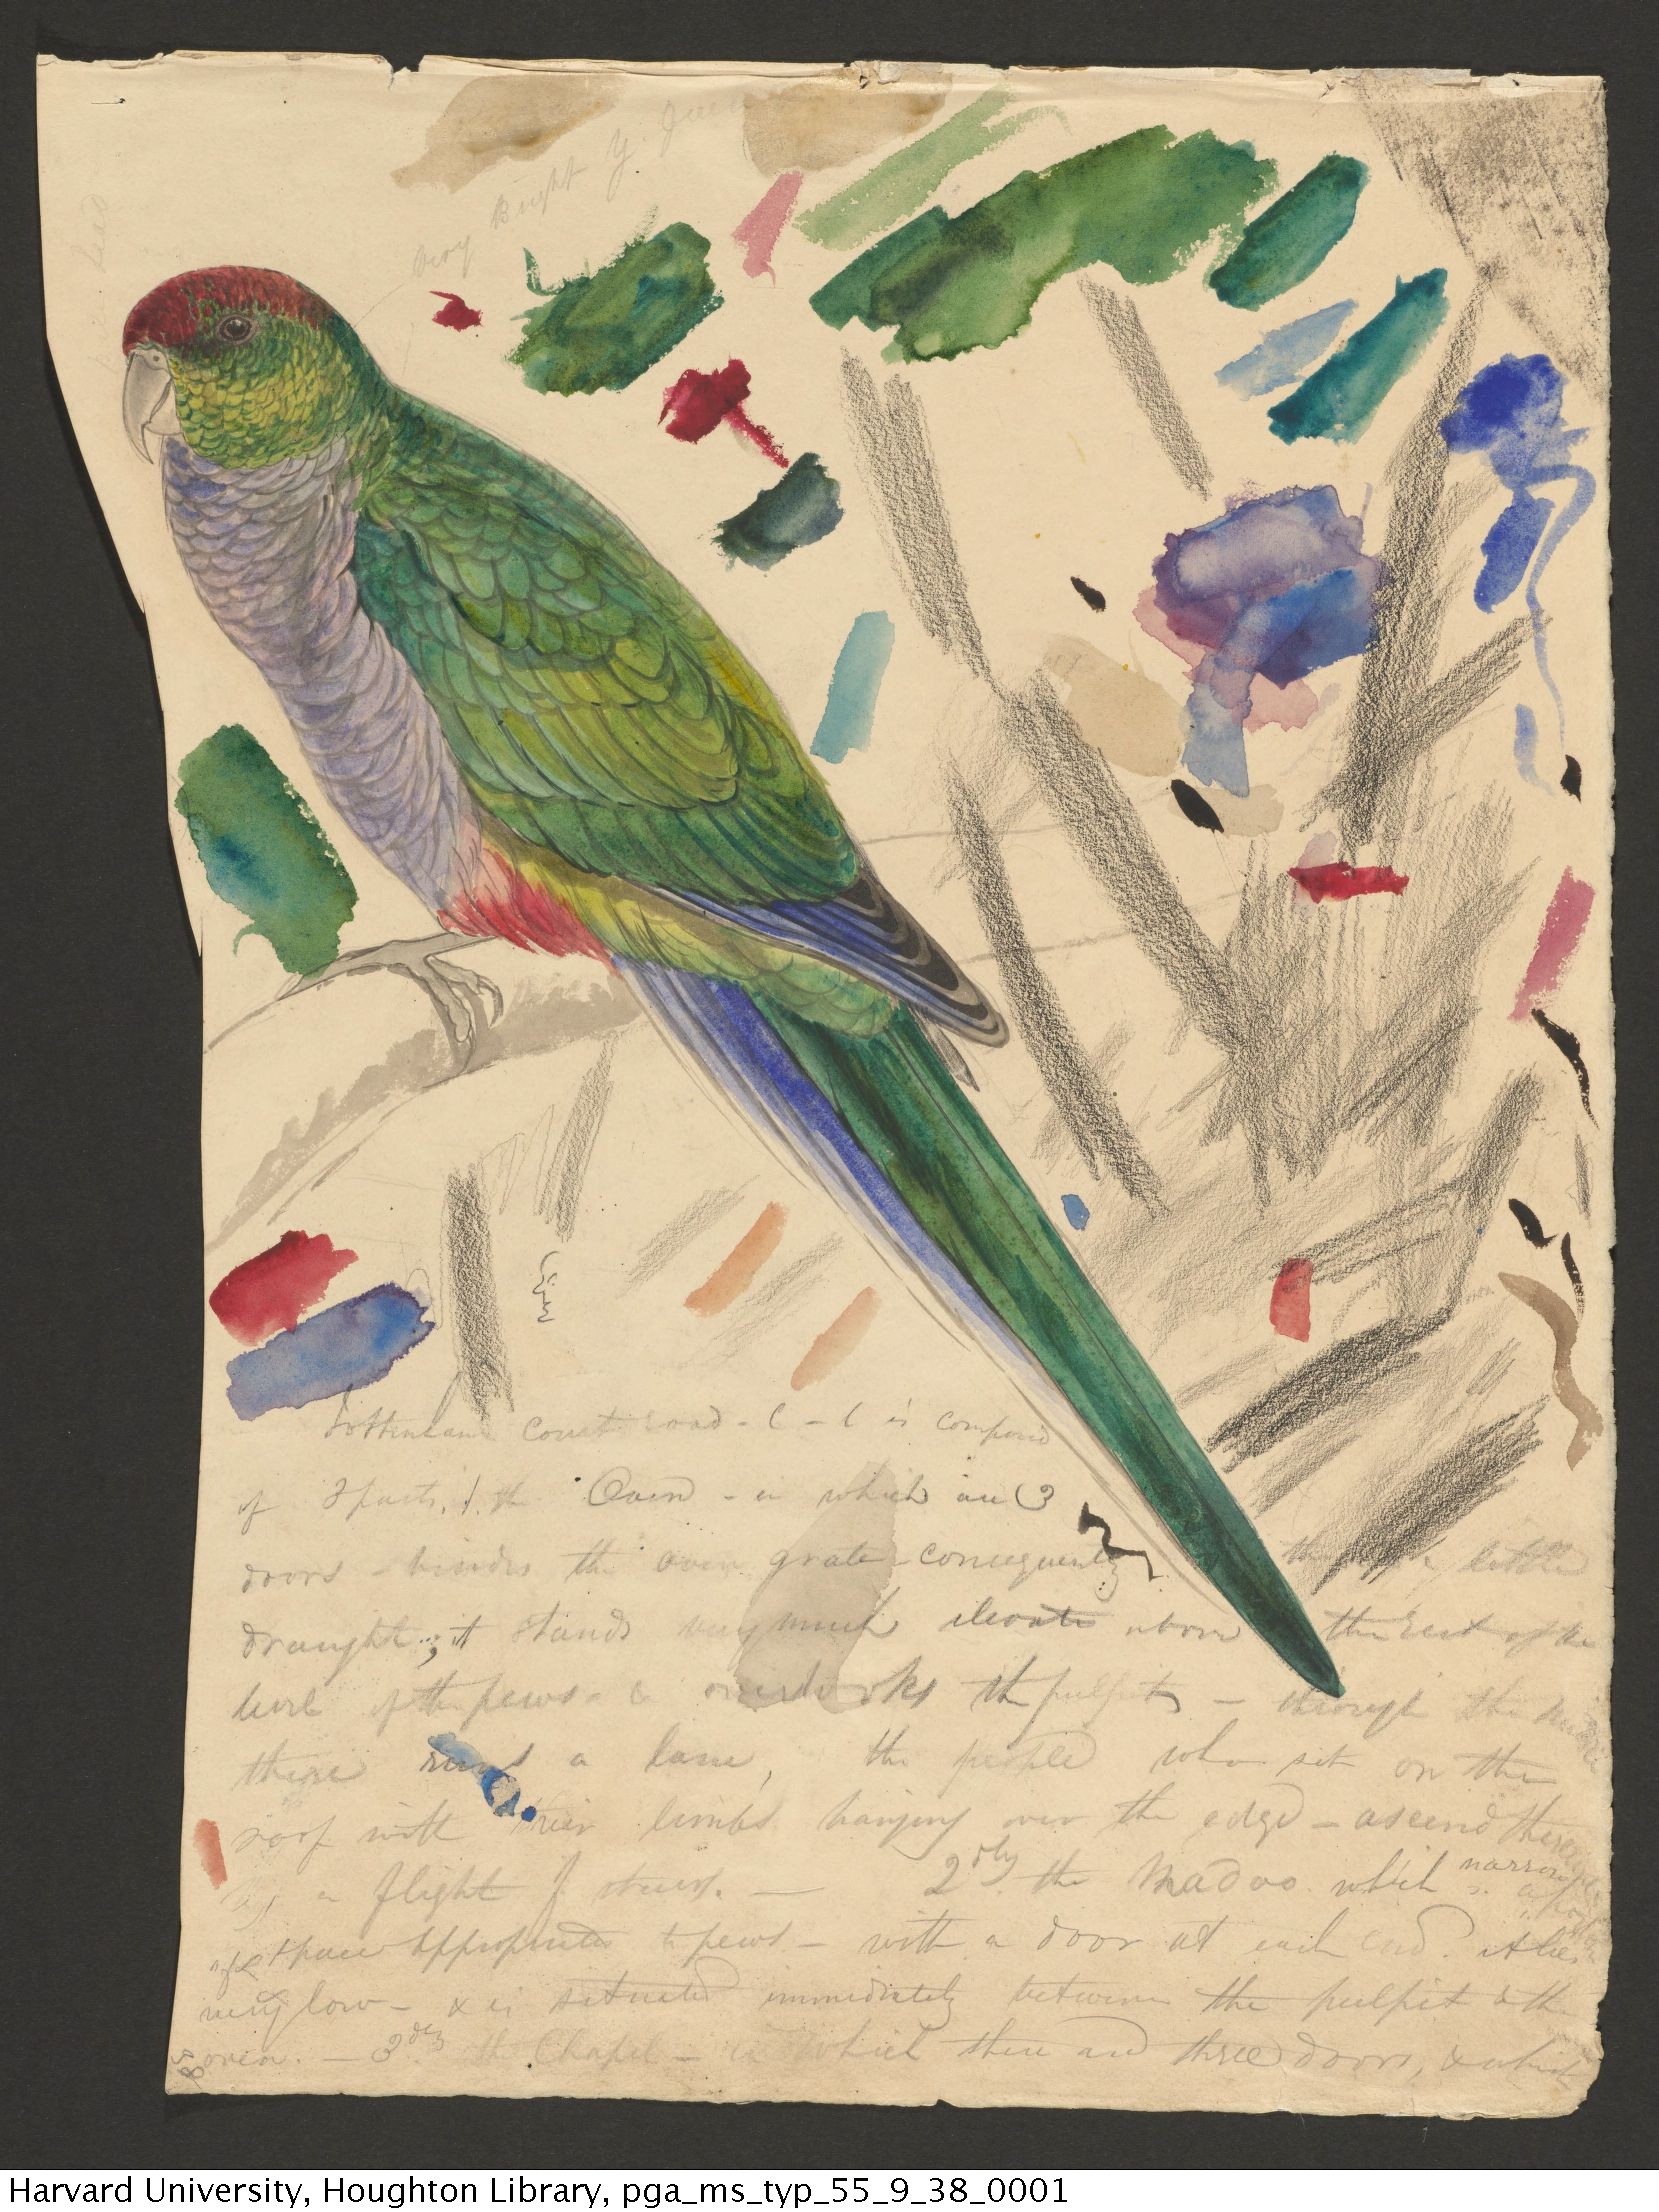 very Bright Y. Green
Tottenham Court Road - C - C is composed
of 3 parts, 1. the Oven - in which are 3
doors - hinders the oven grate - consequently the little
draught; it stands very much elevate above the rest of the
level of the pews - & overlooks the pulpit - through the
there runs a lane, the people who set on the
roof with their limbs hanging over the edge - ascend there
by a flight of stairs. — 2dly the Madoo which narrow
of space appropriated to pews - with a door at each end.
very low - & is situated immediately between the pulpit & the
oven. - 3dly the Chapel - in which there are three doors, & which
Harvard University, Houghton Library, pga_ms_typ_55_9_38_0001